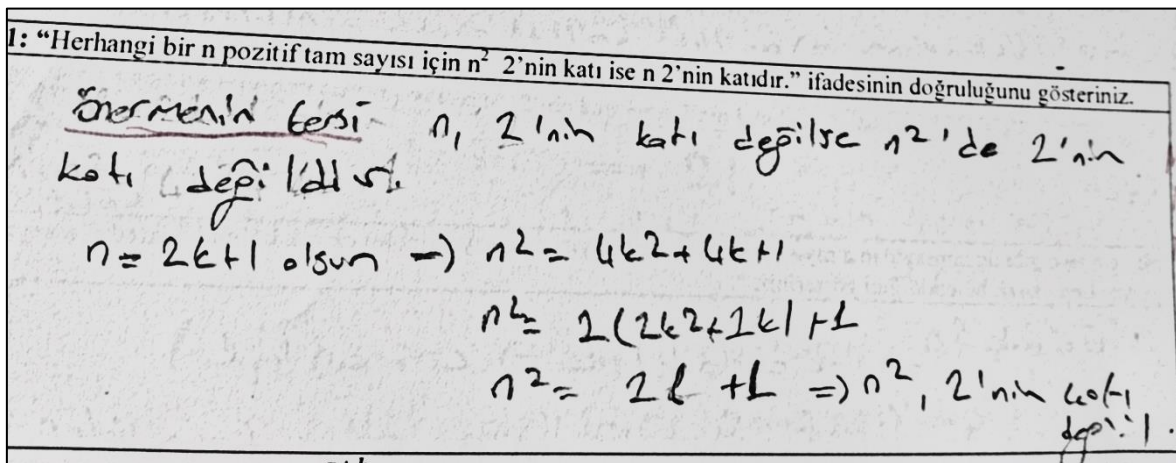 1: “Herhangi bir n pozitif tam sayısı için n² 2’nin katı ise n 2’nin katıdır.” ifadesinin doğruluğunu gösteriniz.
önermenin tersi n, 2'nin katı değilse n²'de 2'nin
katı değildir.
n = 2k+1 olsun → n² = 4k²+4k+1
n² = 2(2k²+2k)+1
n² = 2l +1 ⇒ n², 2'nin katı
değil.